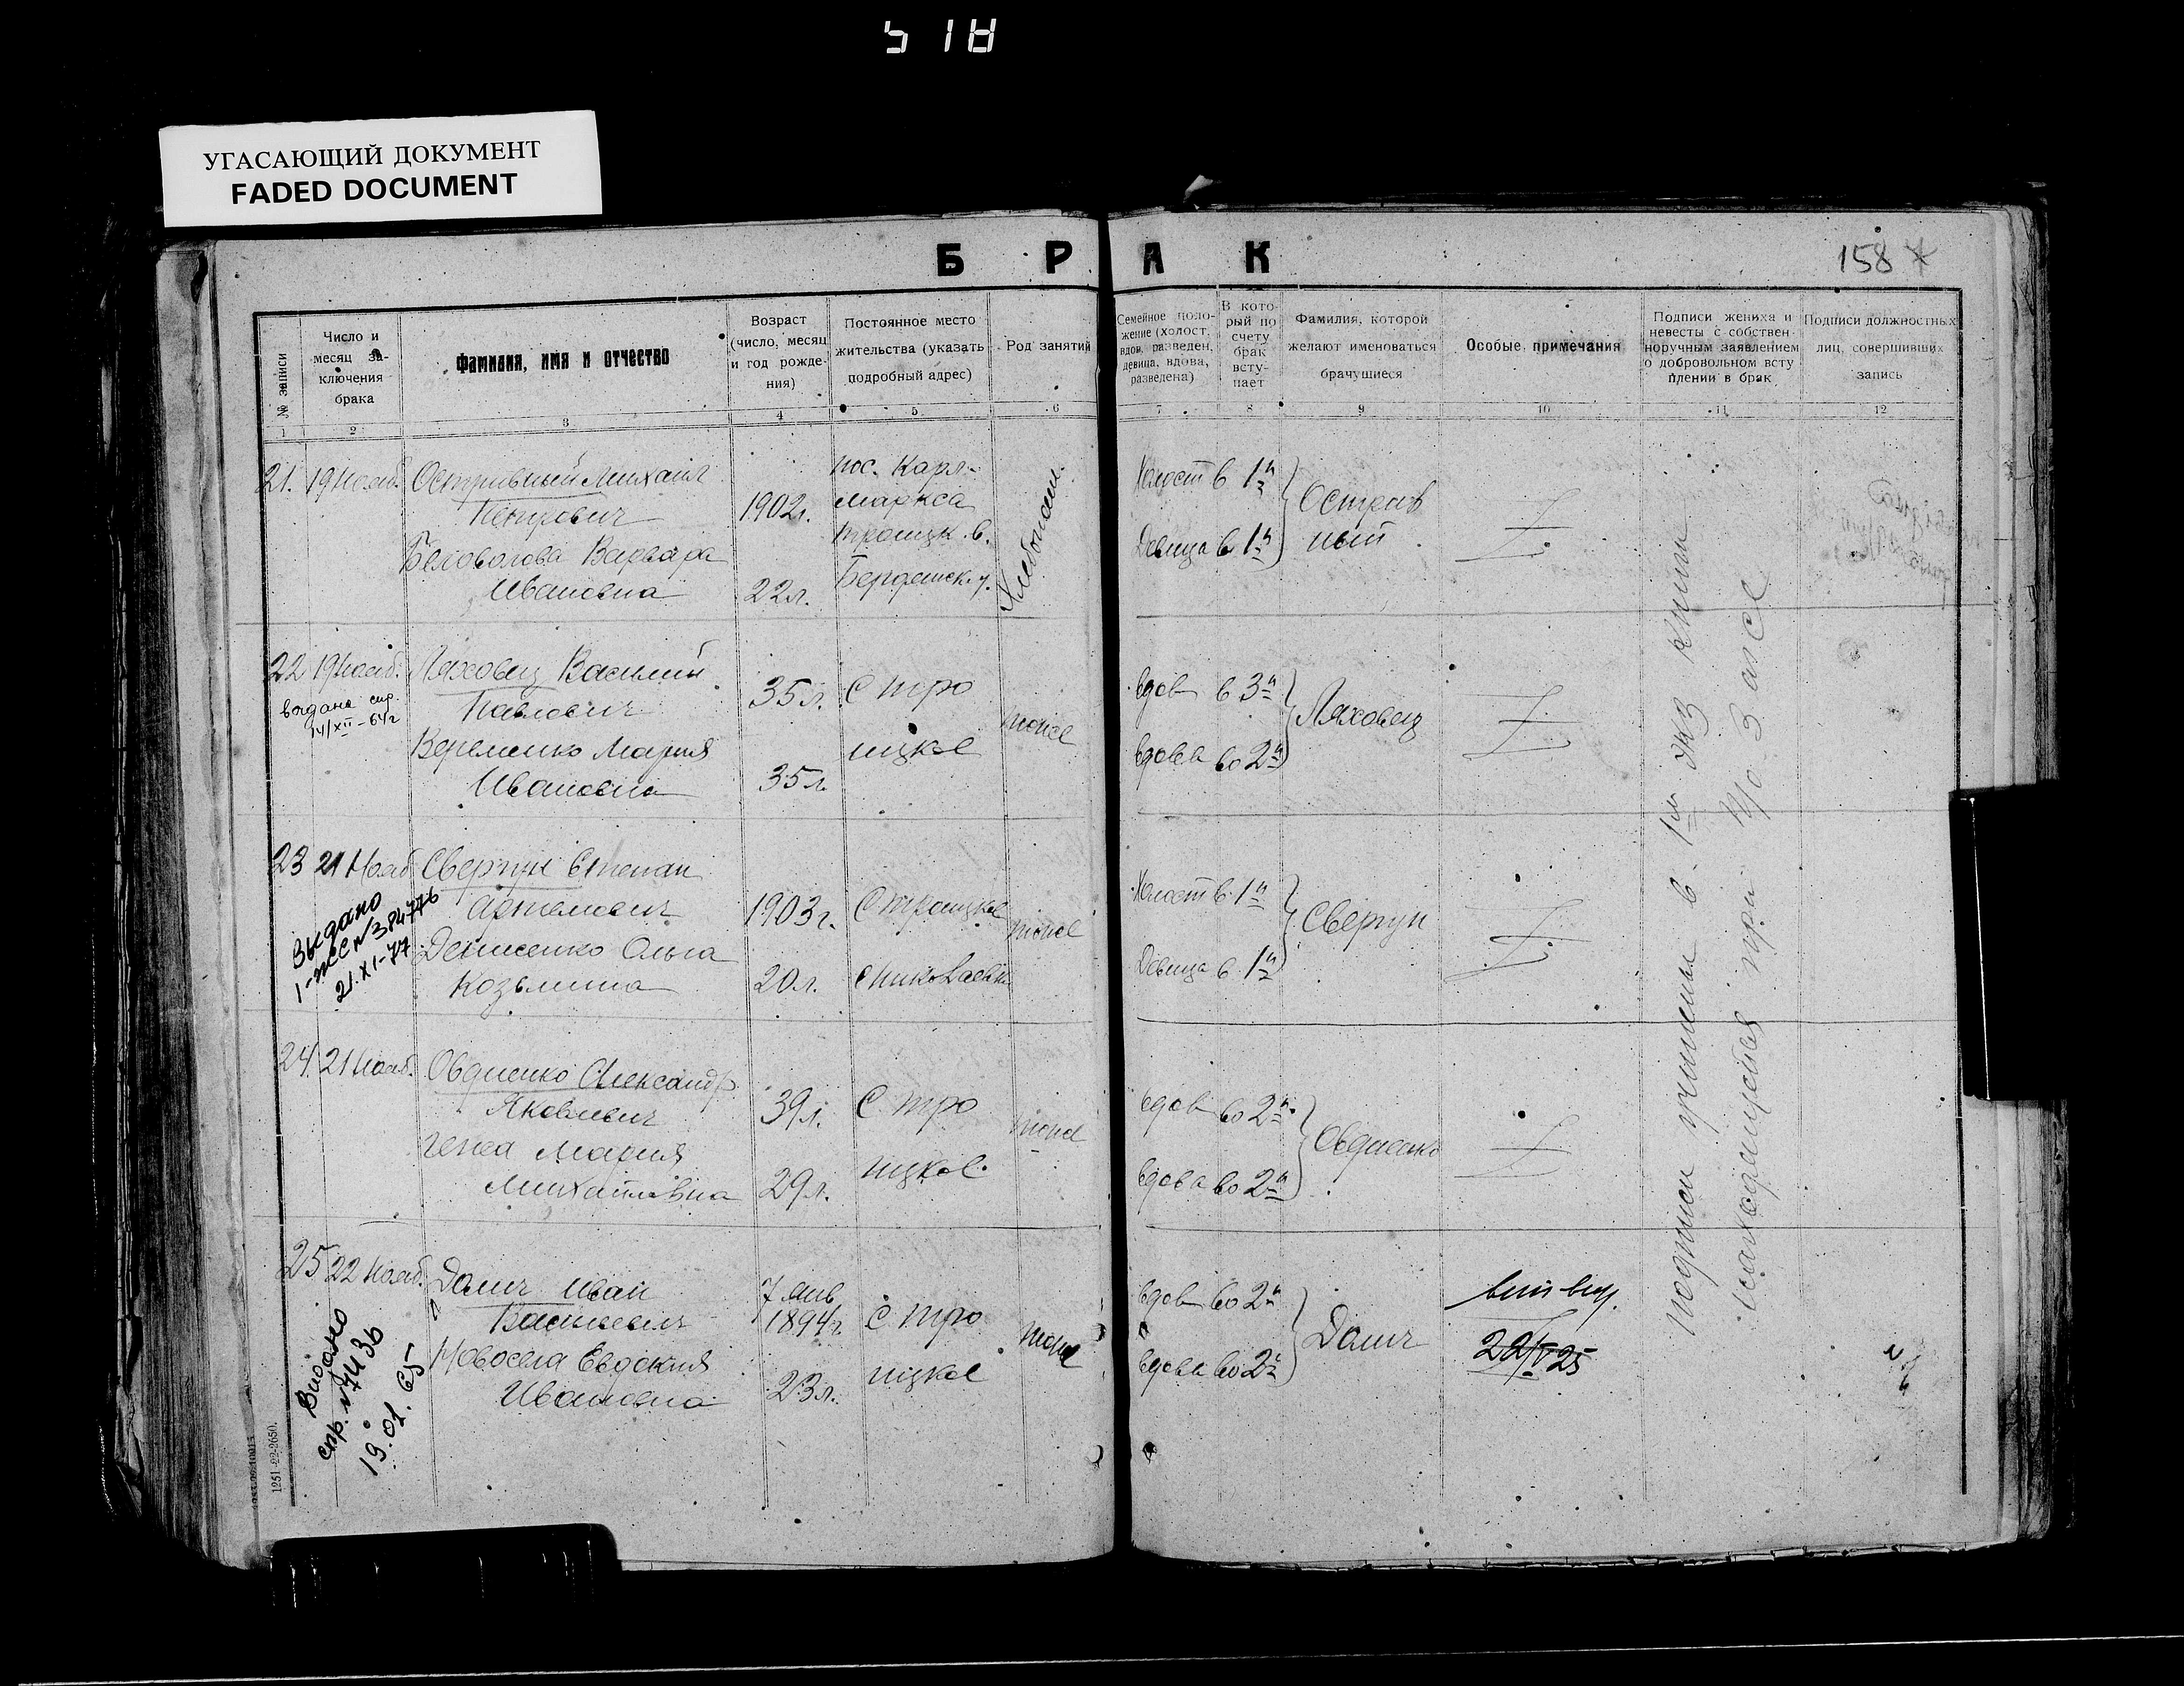 518
УГАСАЮЩИЙ ДОКУМЕНТ
FADED DOCUMENT
БРАК
158
№ записи
Число и месяц заключения брака
Фамилия, имя и отчество
Возраст (число, месяц и год рождения)
Постоянное место жительства (указать подробный адрес)
Род занятий
Семейное положение (холост, вдов, разведен, девица, вдова, разведена)
В который по счету брак вступает
Фамилия, которой желают именоваться брачущиеся
Особые примечания
Подписи жениха и невесты с собственноручным заявлением о добровольном вступлении в брак
Подписи должностных лиц, совершивших запись
1 2 3 4 5 6 7 8 9 10 11 12
21. 19 Нояб. Остривный Михаил
Петрович
1902г.
Беловолова Варвара
Ивановна
22л.
пос. Карл-
Маркса
троицк. в.
Бердянск. у.
Хлебопаш.
Холост в 1й
Девица в 1й
Острив
ный
22 19 Нояб.
выдана спр.
14/XII-64г
Ляховец Василий
Павлович
35л.
Веременко Мария
Ивановна
35л.
с тро
ицкое
тоже
вдов в 3й
вдова во 2й
Ляховец
23 21 Нояб
Выдано
I-ЖС № 384776
21.XI-77
Свергун Степан
Артемович
1903г.
Денисенко Ольга
Козьмина
20л.
с троицкое
тоже
Холост в 1й
Девица в 1й
Свергун
24. 21 Нояб.
Овдиенко Александр
Яковлевич
39л.
Мария
Михайловна
29л.
с. тро
ицкое.
тоже
вдов во 2й
вдова во 2й
Овдиенко
25 22 Нояб.
Видано
спр. № 7436
19.01.65
Далич Иван
Васильевич
7 янв
1894г.
Евдокия
Ивановна
23л.
с тро
ицкое
тоже
вдов во 2й
вдова во 2й
Далич
25
подписи учинены в 1м экз книги
находящейся при
1251-22-2650.